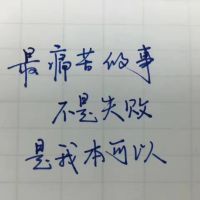 最痛苦的事
不是失败
是我本可以